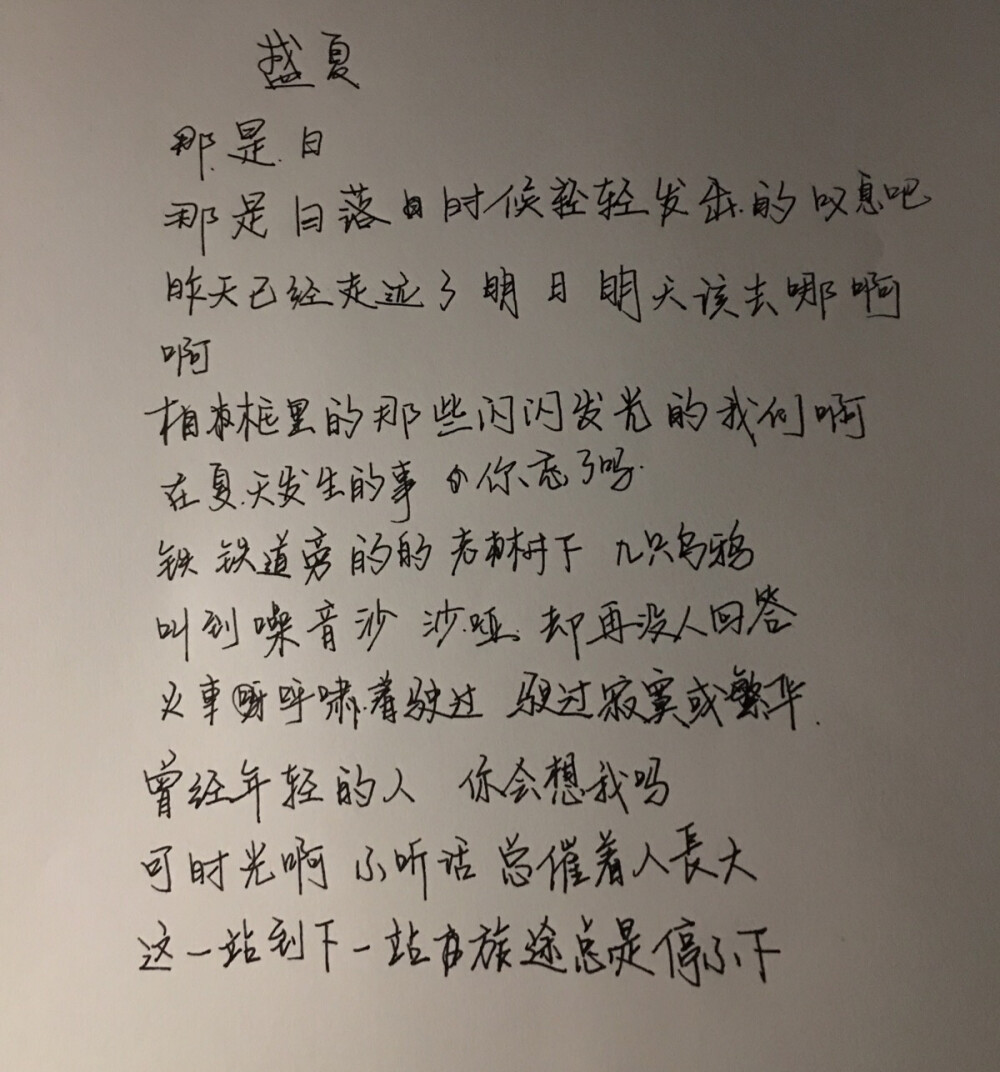 盛夏
那是日
那是日落时候轻轻发出的叹息吧
昨天已经走远了 明日 明天该去哪啊
啊
相框里的那些闪闪发光的我们啊
在夏天发生的事 你忘了吗
铁 铁道旁的的老树下 几只乌鸦
叫到嗓音沙 沙哑 却再没人回答
火车呼啸着驶过 驶过寂寞或繁华
曾经年轻的人 你会想我吗
可时光啊 不听话 总催着人長大
这一站到下一站 旅途总是停不下